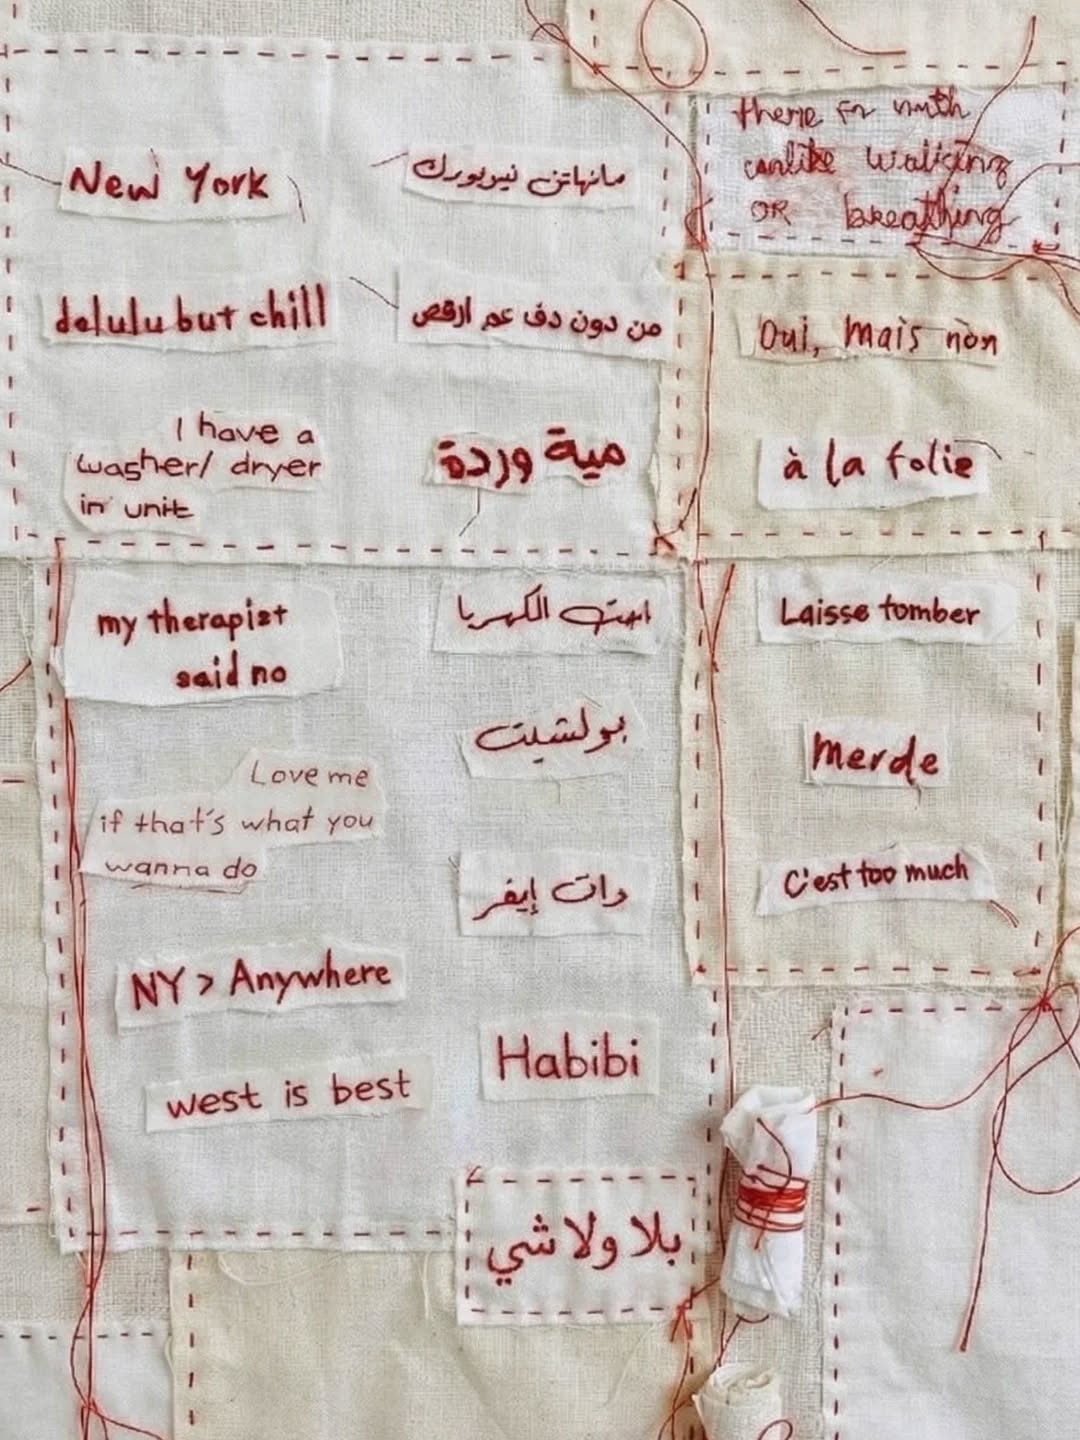 New York
delulu but chill
I have a
washer/ dryer
in unit
my therapist
said no
Love me
if that's what you
wanna do
NY > Anywhere
west is best
مانهاتن نيويورك
من دون دف عم ارقص
مية وردة
اجت الكهربا
بولشيت
وات إيفر
Habibi
بلا ولا شي
there
walking
OR breathing
Oui, mais non
à la folie
Laisse tomber
Merde
C'est too much